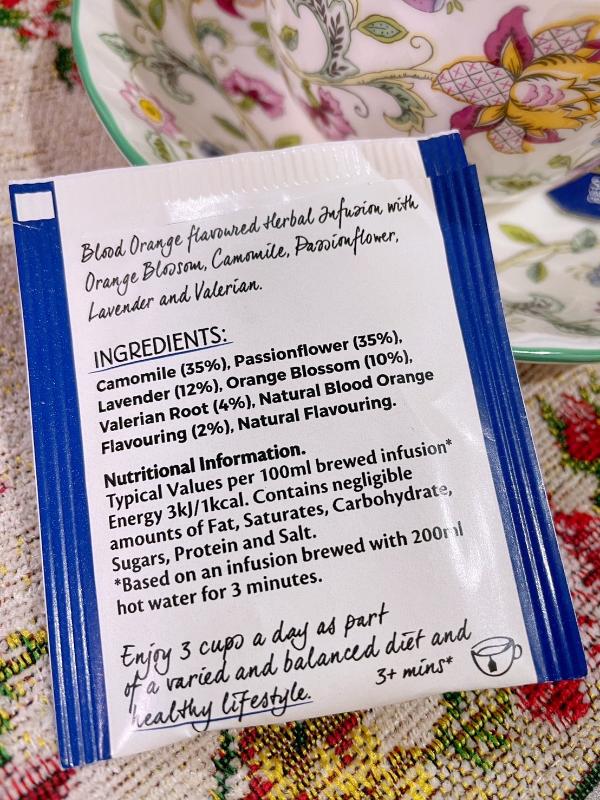 Blood Orange flavoured Herbal Infusion with
Orange Blossom, Camomile, Passionflower,
Lavender and Valerian.
INGREDIENTS:
Camomile (35%), Passionflower (35%),
Lavender (12%), Orange Blossom (10%),
Valerian Root (4%), Natural Blood Orange
Flavouring (2%), Natural Flavouring.
Nutritional Information.
Typical Values per 100ml brewed infusion*
Energy 3kJ/1kcal. Contains negligible
amounts of Fat, Saturates, Carbohydrate,
Sugars, Protein and Salt.
*Based on an infusion brewed with 200ml
hot water for 3 minutes.
Enjoy 3 cups a day as part
of a varied and balanced diet and
healthy lifestyle.
3+ mins*